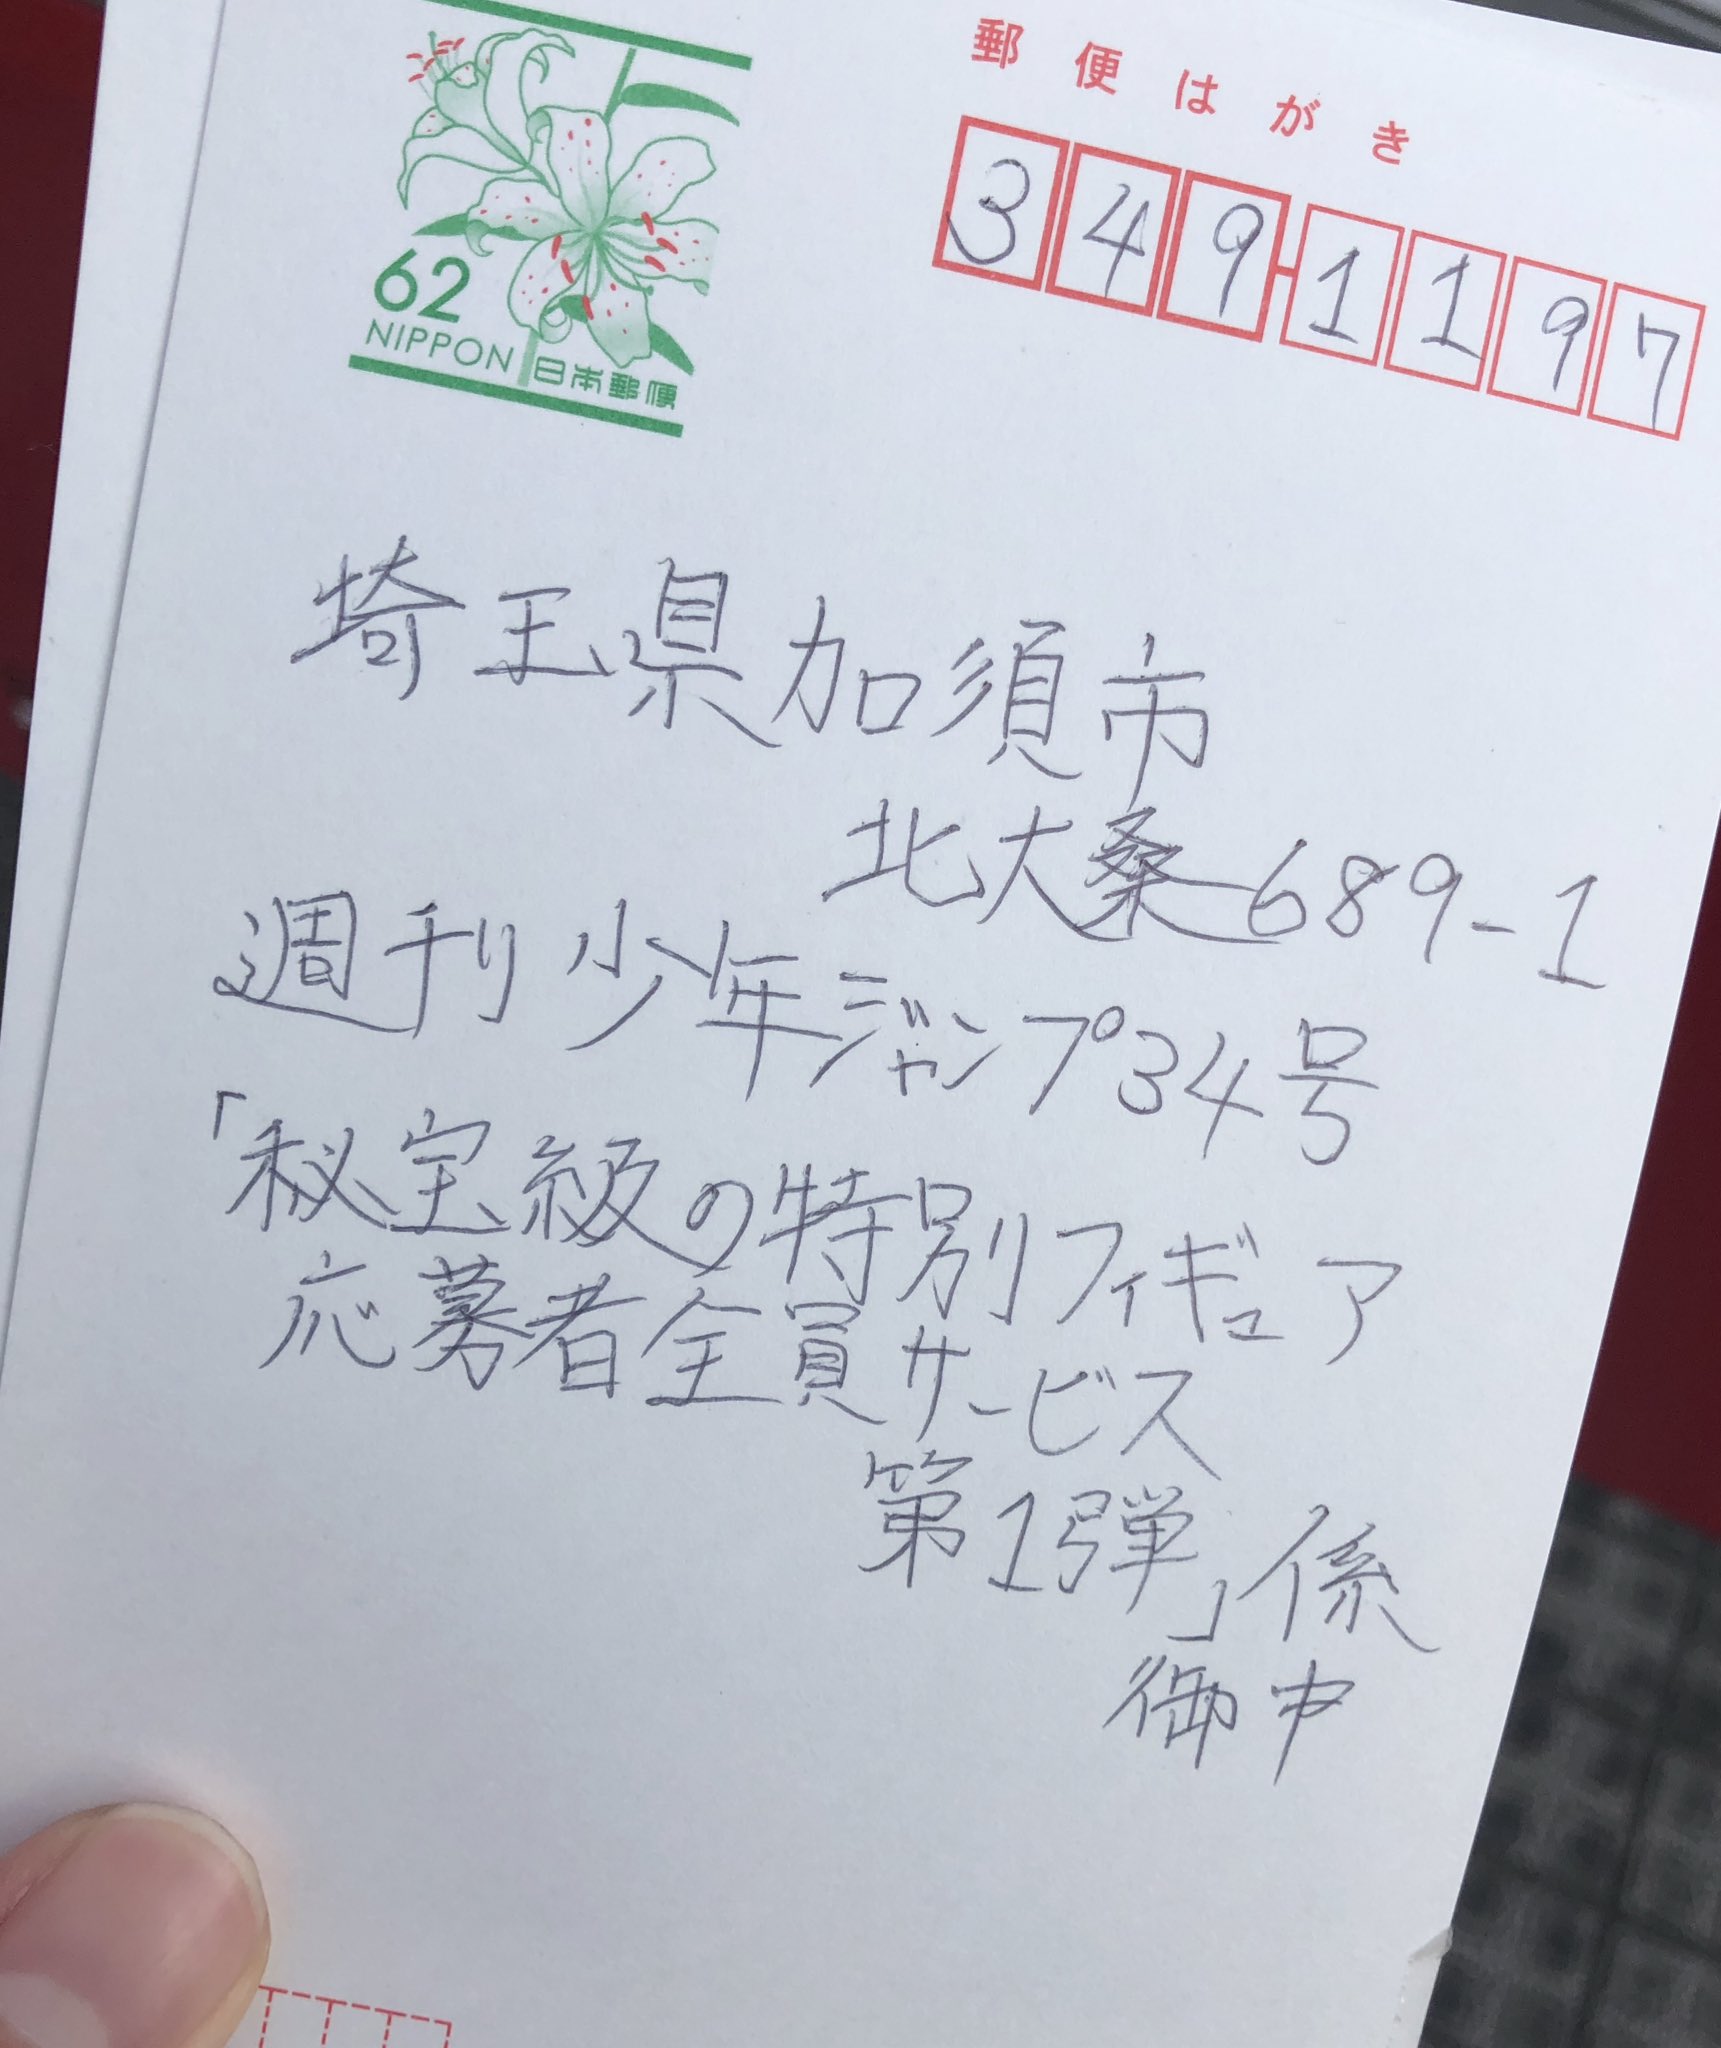 郵便はがき
349-1197
62
NIPPON 日本郵便
埼玉県加須市
北大桑689-1
週刊少年ジャンプ34号
「秘宝級の特別フィギュア
応募者全員サービス
第1弾」係
御中